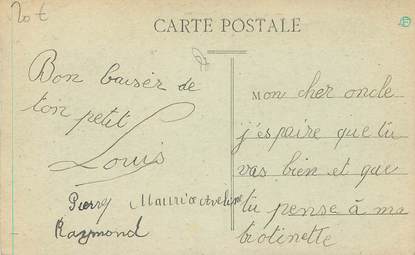 20 €
CARTE POSTALE
Bon baiser de
ton petit
Louis
Pierre Maurice Aveline
Raymond
Mon cher oncle
j'espaire que tu
vas bien et que
tu pense à ma
trotinette